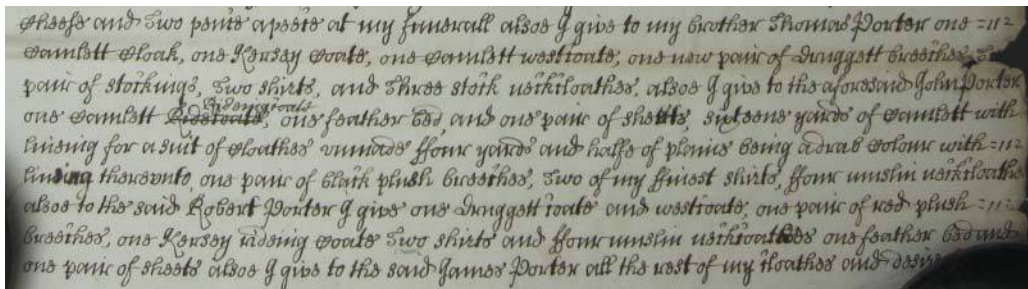 Cheese and Two pence apeece at my funerall alsoe I give to my brother Thomas Porter one =
Camlett Cloak, one Kersey Coate, one Camlett westcoate, one new pair of druggett breeches
pair of stockings, Two shirts, and Three stock neckcloathes. alsoe I give to the aforesaid John Porter
one Camlett Rideingcoate, one feather bed, and one pair of sheets, sixteene yards of Camlett with
lineing for a suit of Cloathes unmade ffour yards and halfe of plaine being a drab Colour with =
lineing thereunto, one pair of black plush breeches, Two of my ffinest shirts, ffour muslin neckcloathes
alsoe to the said Robert Porter I give one druggett coate and westcoate, one pair of red plush =
breeches, one Kersey rideing Coate Two shirts and ffour muslin neckcloathes one feather bed and
one pair of sheets alsoe I give to the said James Porter all the rest of my cloathes and